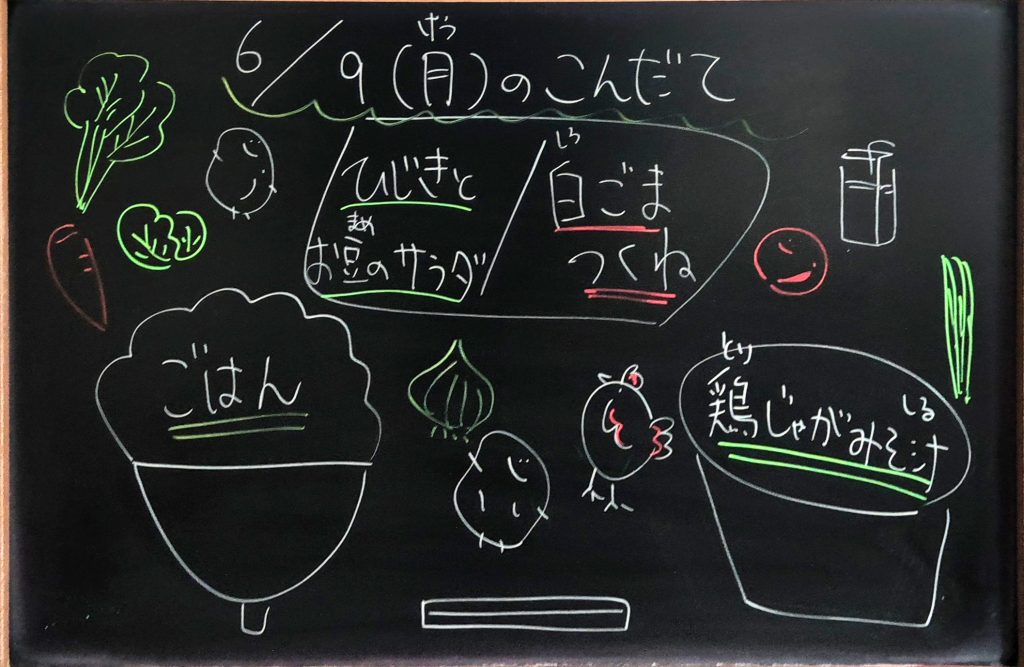 6/9(月)のこんだて
げつ
ひじきと
お豆のサラダ
まめ
白ごま
しろ
つくね
ごはん
鶏じゃがみそ汁
とり
しる